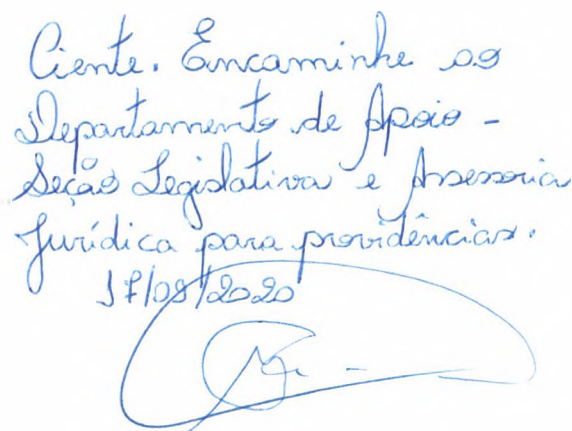 Ciente. Encaminhe ao
Departamento de Apoio -
Seção Legislativa e Assessoria
Jurídica para providências.
17/08/2020